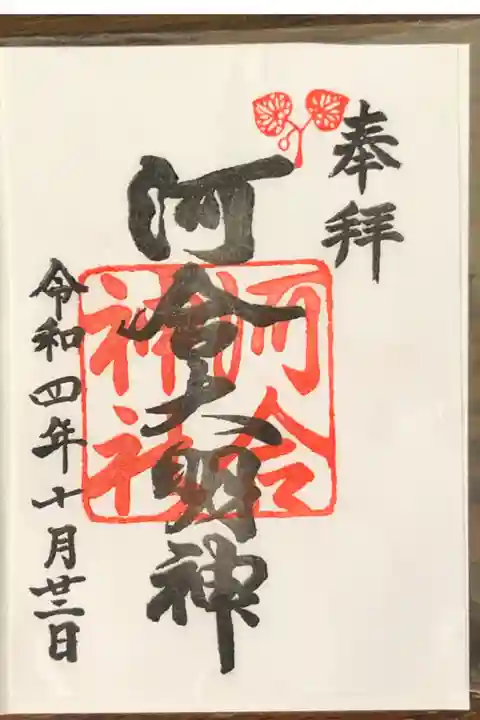 奉拝
河會大明神
河合
神社
令和四年十月廿三日